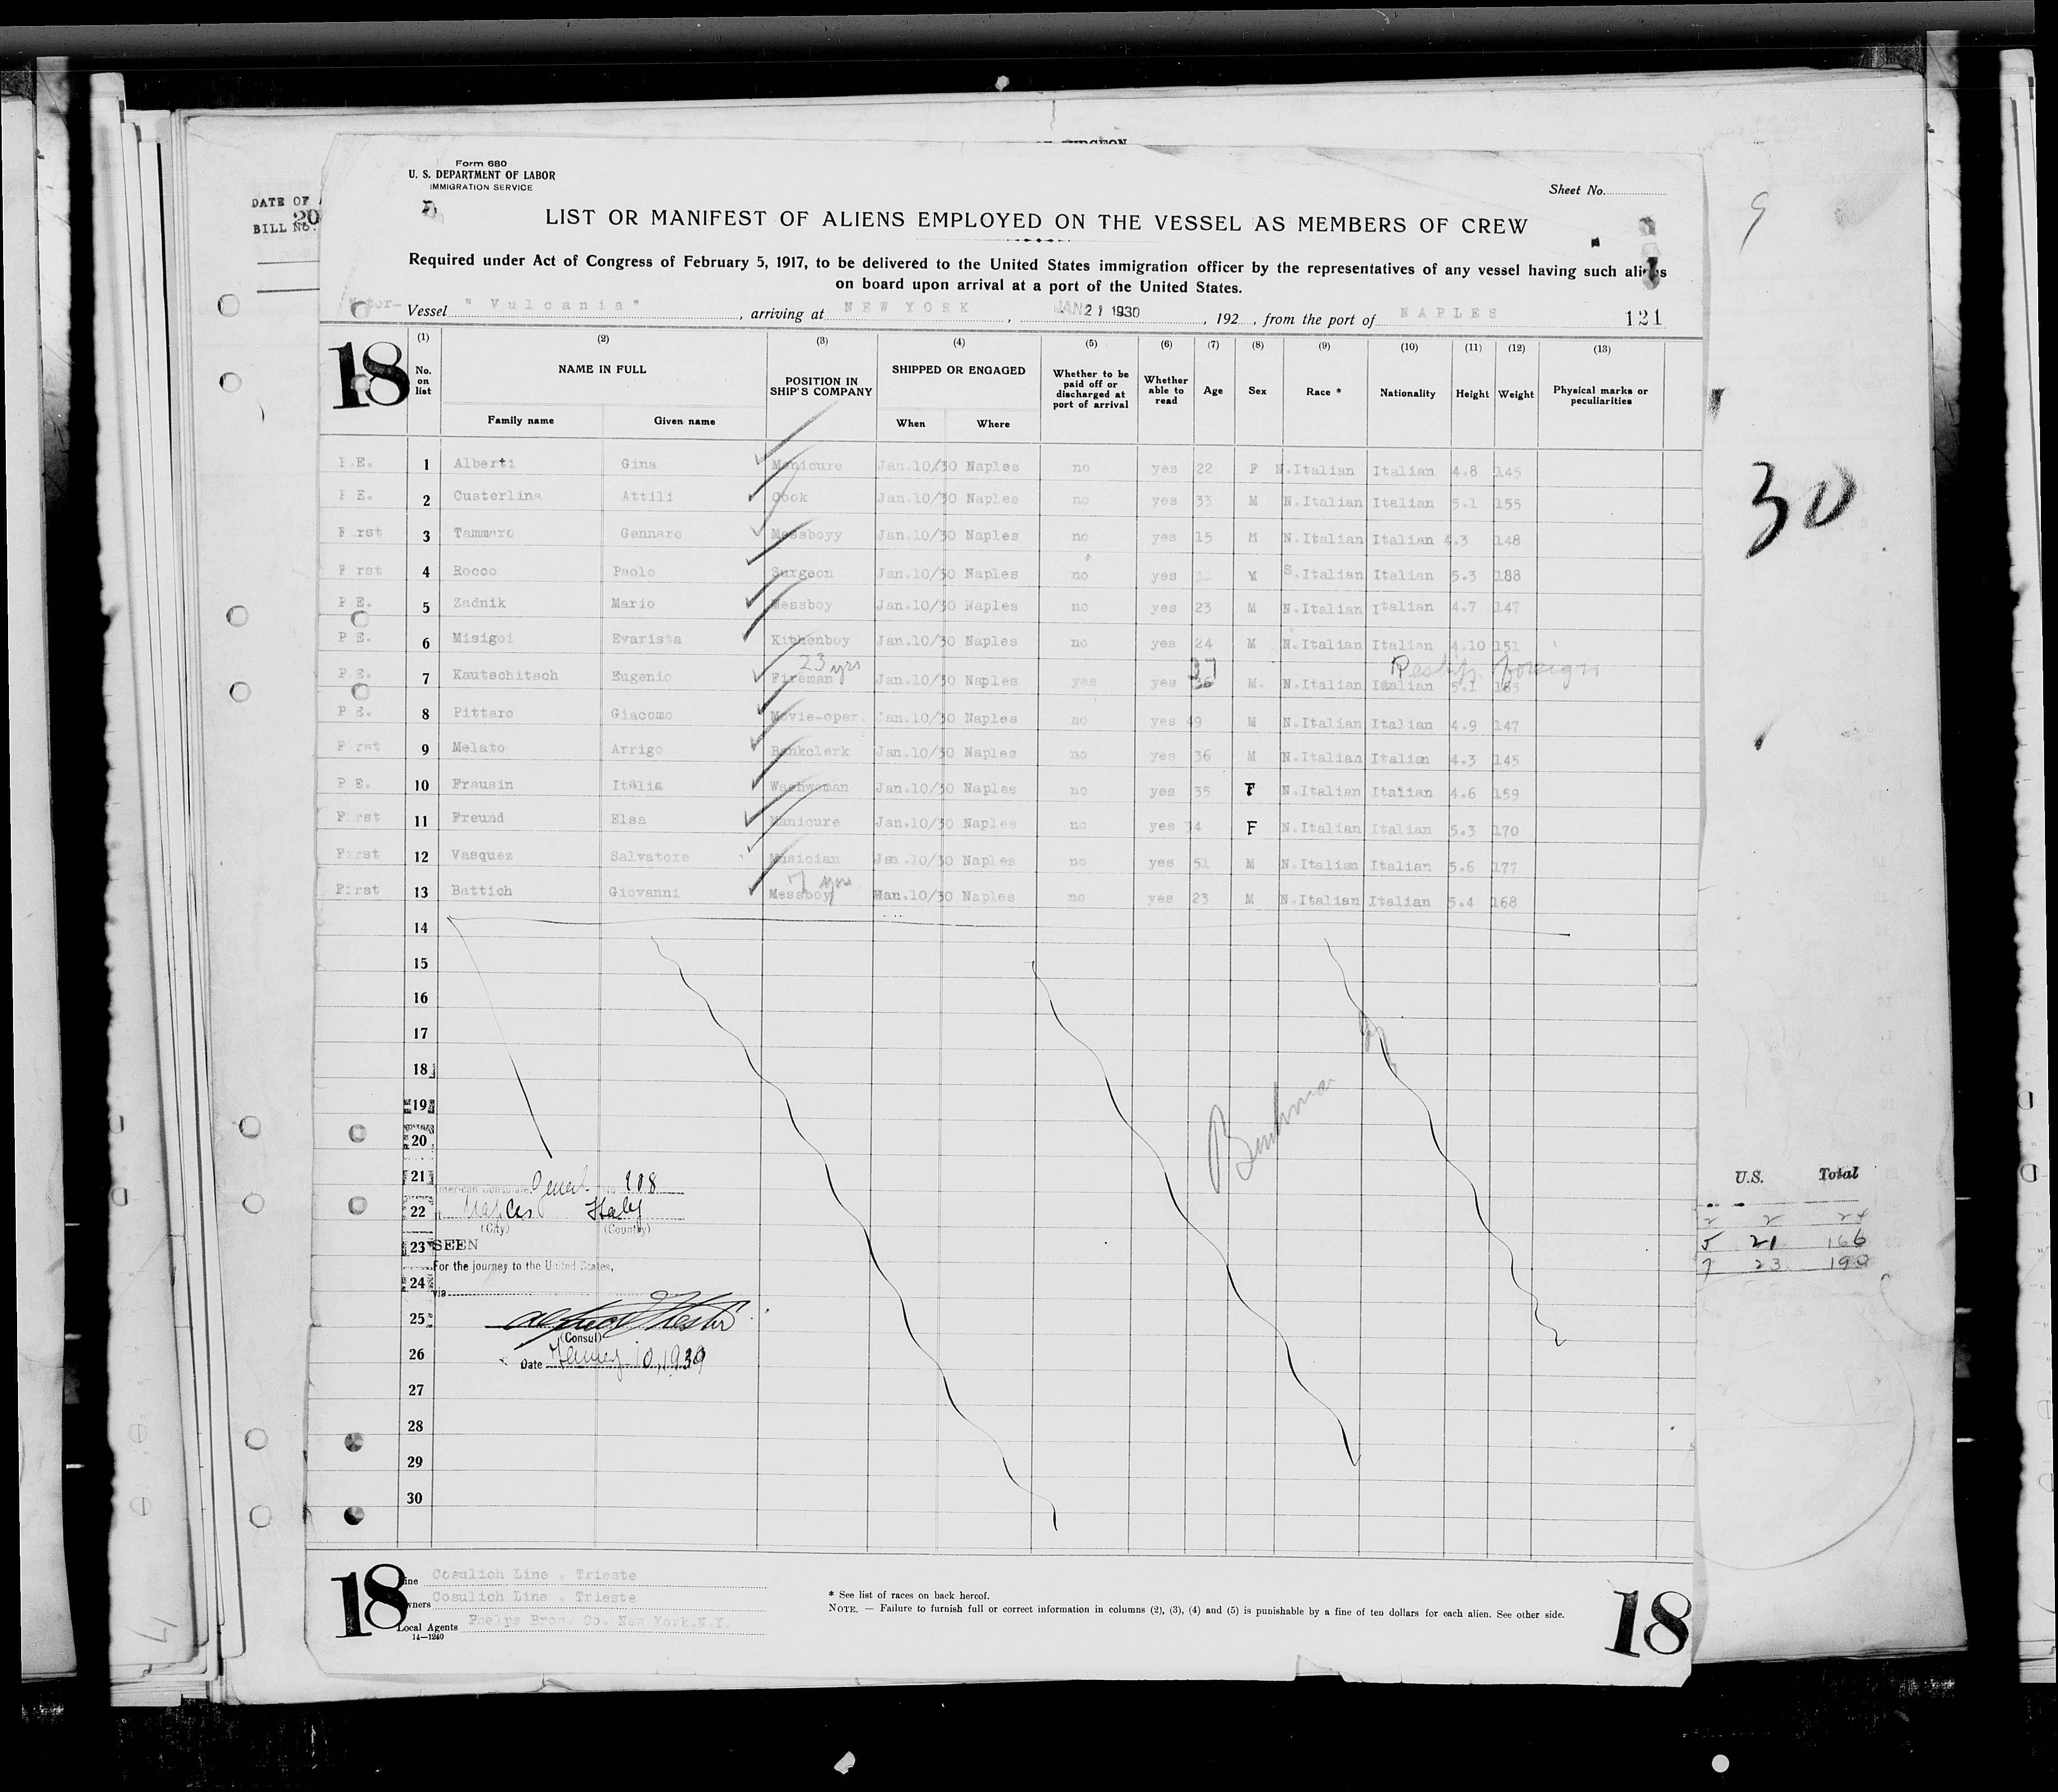 Form 680
U. S. DEPARTMENT OF LABOR
IMMIGRATION SERVICE
Sheet No.
DATE OF
BILL No. 20
LIST OR MANIFEST OF ALIENS EMPLOYED ON THE VESSEL AS MEMBERS OF CREW
Required under Act of Congress of February 5, 1917, to be delivered to the United States immigration officer by the representatives of any vessel having such aliens
on board upon arrival at a port of the United States.
Vessel " Vulcania " , arriving at NEW YORK , JAN 21 1930 , 192 , from the port of NAPLES 121
18
(1) (2) (3) (4) (5) (6) (7) (8) (9) (10) (11) (12) (13)
No. on list NAME IN FULL POSITION IN SHIP'S COMPANY SHIPPED OR ENGAGED Whether to be paid off or discharged at port of arrival Whether able to read Age Sex Race * Nationality Height Weight Physical marks or peculiarities
Family name Given name When Where
P.E. 1 Alberti Gina Manicure Jan.10/30 Naples no yes 22 F N.Italian Italian 4.8 145
P E. 2 Custerlina Attili Cook Jan.10/30 Naples no yes 33 M N.Italian Italian 5.1 155
F rst 3 Tammaro Gennaro Messboyy Jan.10/30 Naples no yes 15 M N.Italian Italian 4.3 148
F rst 4 Rocco Paolo Surgeon Jan.10/30 Naples no yes M S.Italian Italian 5.3 188
P E. 5 Zadnik Mario Messboy Jan.10/30 Naples no yes 23 M N.Italian Italian 4.7 147
P E. 6 Misigoi Evarista Kithenboy Jan.10/30 Naples no yes 24 M N.Italian Italian 4.10 151
23 yrs 37 foreign
P.E. 7 Kautschitsch Eugenio Fireman Jan.10/30 Naples yes yes 36 M. N.Italian Italian 5.1 165
P E. 8 Pittaro Giacomo Movie-oper. Jan.10/30 Naples no yes 49 M N.Italian Italian 4.9 147
F rst 9 Melato Arrigo Bankclerk Jan.10/30 Naples no yes 36 M N.Italian Italian 4.3 145
P E. 10 Frausin Italia Washwoman Jan.10/30 Naples no yes 35 F N.Italian Italian 4.6 159
First 11 Freund Elsa Manicure Jan.10/30 Naples no yes 34 F N.Italian Italian 5.3 170
First 12 Vasquez Salvatore Musician Jan.10/30 Naples no yes 51 M N.Italian Italian 5.6 177
7 yrs
First 13 Battich Giovanni Messboy Jan.10/30 Naples no yes 23 M N.Italian Italian 5.4 168
14
15
16
17
18
19
20
21
American Consulate General No 108
22
Naples Italy
(City) (Country)
23 SEEN
For the journey to the United States,
24
via
25
(Consul)
26
Date January 10, 1930
27
28
29
30
18
Line Cosulich Line . Trieste
Owners Cosulich Line . Trieste
Local Agents Phelps Bros. Co. New York.N.Y.
14—1240
* See list of races on back hereof.
NOTE. — Failure to furnish full or correct information in columns (2), (3), (4) and (5) is punishable by a fine of ten dollars for each alien. See other side.
18
9
30
U.S. Total
2 2 24
5 21 166
7 23 190